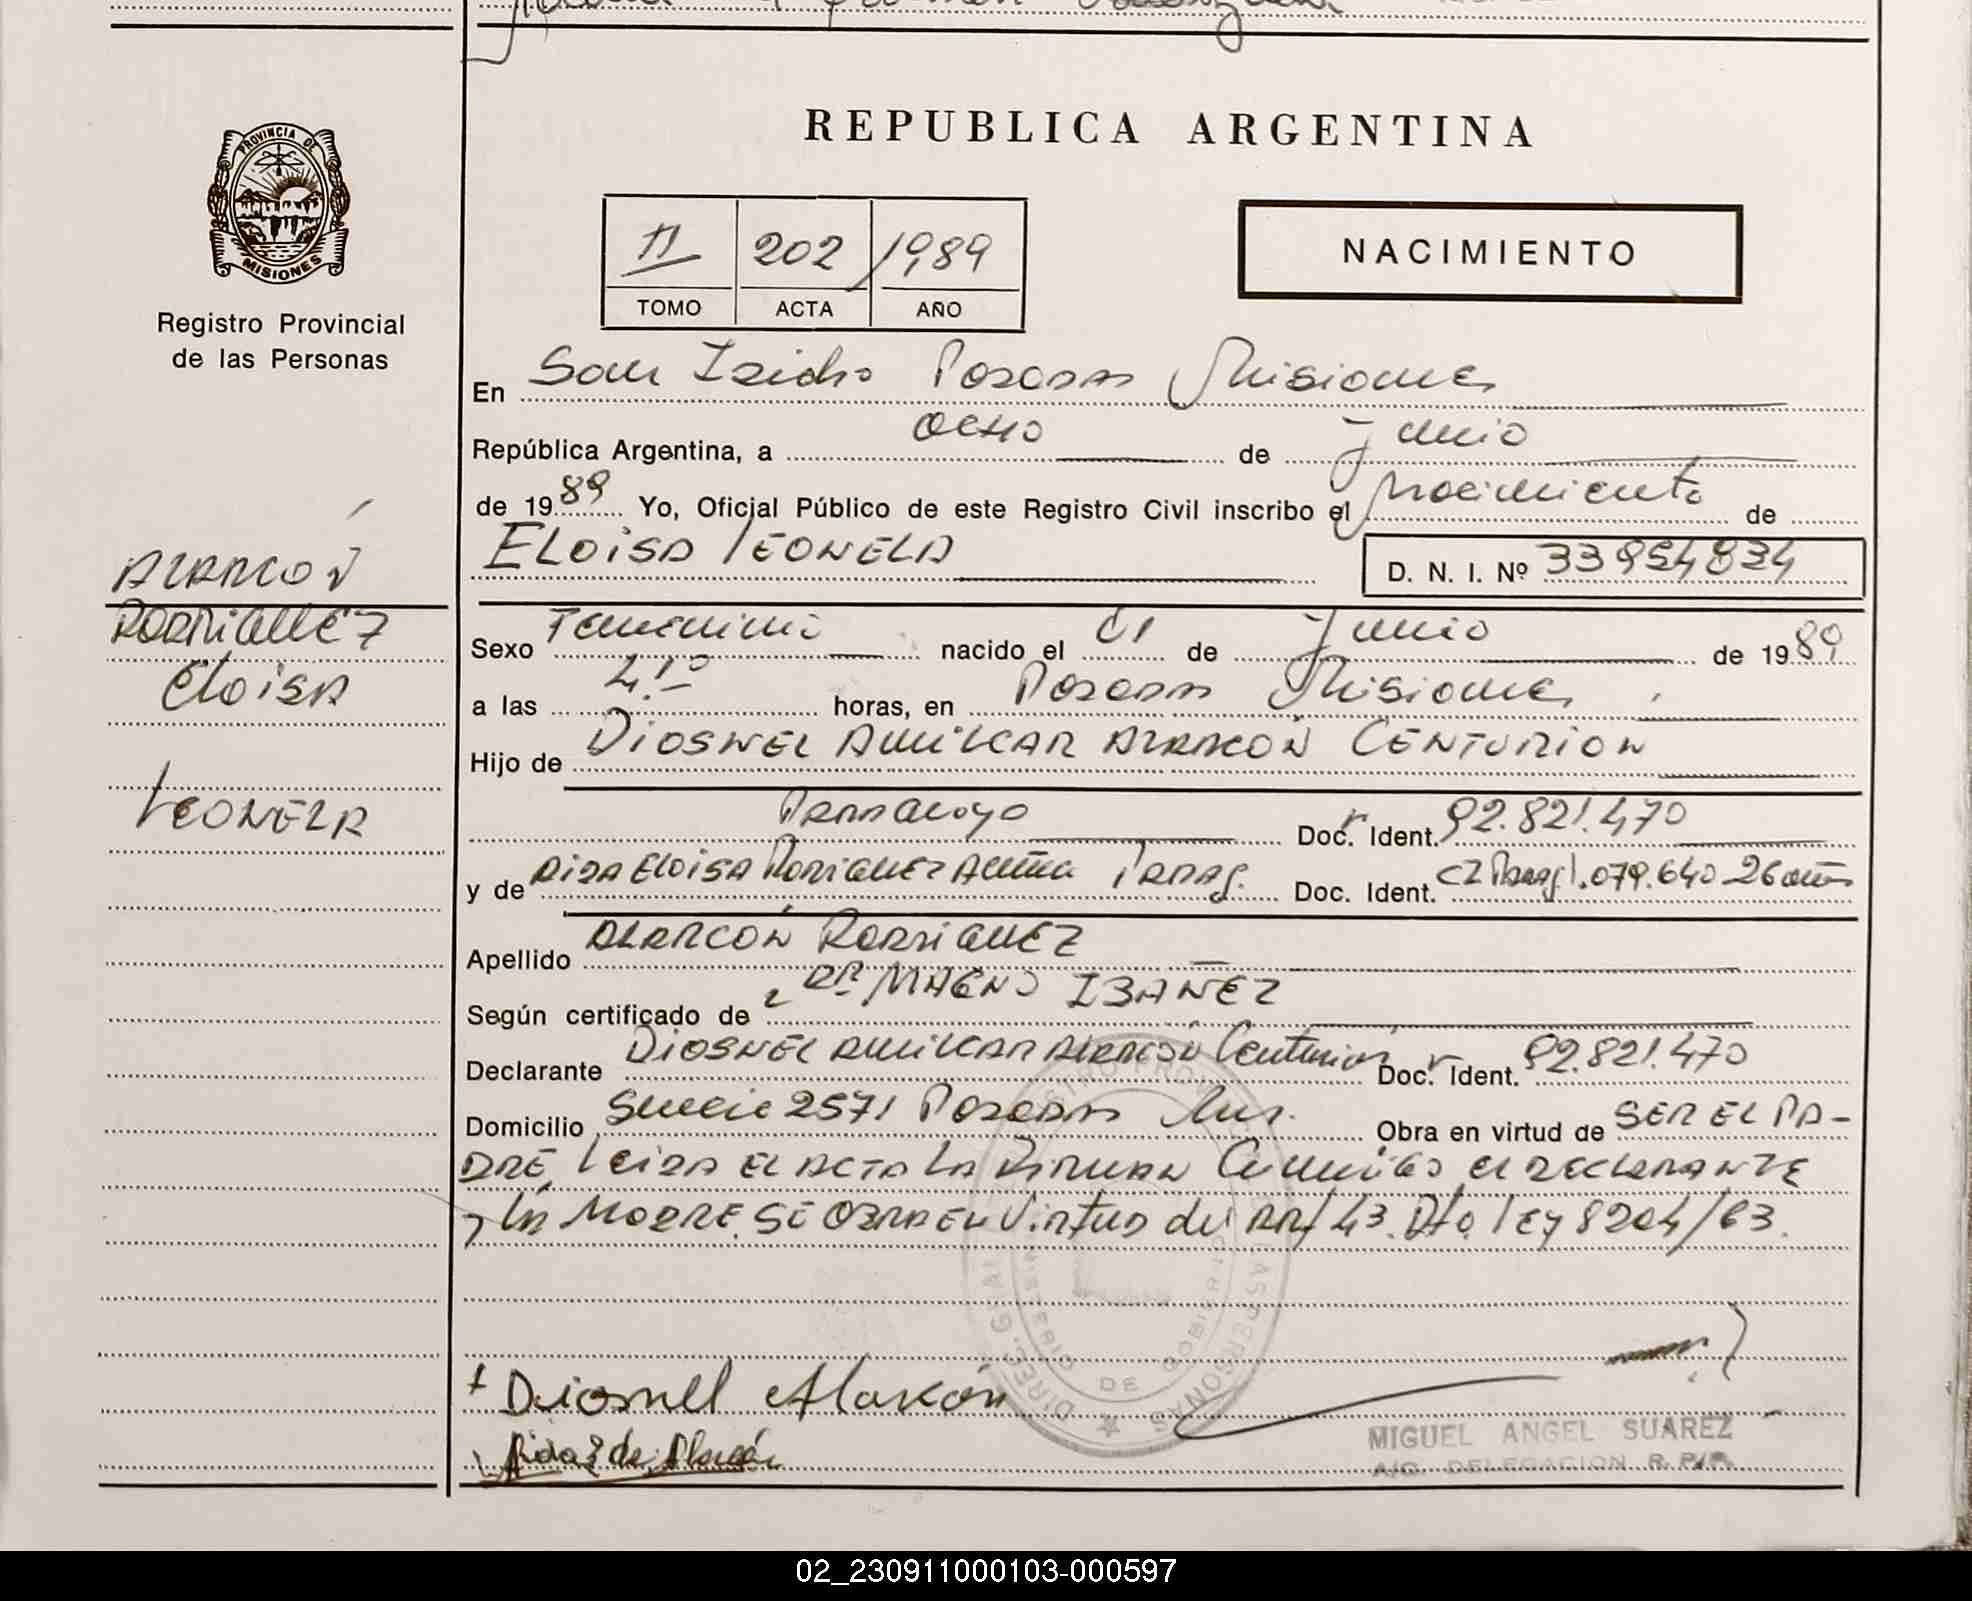 REPUBLICA ARGENTINA
PROVINCIA DE
MISIONES
Registro Provincial
de las Personas
II 202 1989
TOMO ACTA AÑO
NACIMIENTO
En San Isidro Posadas Misiones
República Argentina, a ocho de junio
de 1989 Yo, Oficial Público de este Registro Civil inscribo el nacimiento de
ELOISA LEONELA D. N. I. Nº 33954834
ALARCÓN
RODRIGUEZ
ELOISA
LEONELA
Sexo Femenino nacido el 01 de junio de 1989
a las 4.10 horas, en Posadas Misiones
Hijo de DIOSNEL AMILCAR ALARCÓN CENTURION
Paraguayo Doc. Ident. 92.821.470
y de AIDA ELOISA RODRIGUEZ ACUÑA Parag. Doc. Ident. CI Parag 1.079.640 26 años
Apellido ALARCÓN RODRIGUEZ
Según certificado de DR. MAGNO IBAÑEZ
Declarante DIOSNEL AMILCAR ALARCÓN Centurión Doc. Ident. 92.821.470
Domicilio 2571 Posadas Mnes. Obra en virtud de SER EL PA-
DRE, LEIDA EL ACTA LA FIRMAN CONMIGO EL DECLARANTE
Y LA MADRE. SE OBRA EN Virtud del ART 43 Dto. LEY 8204/63.
Diosnel Alarcón
Aida R de Alarcón
MIGUEL ANGEL SUAREZ
A/C. DELEGACION R. P. P.
02_230911000103-000597